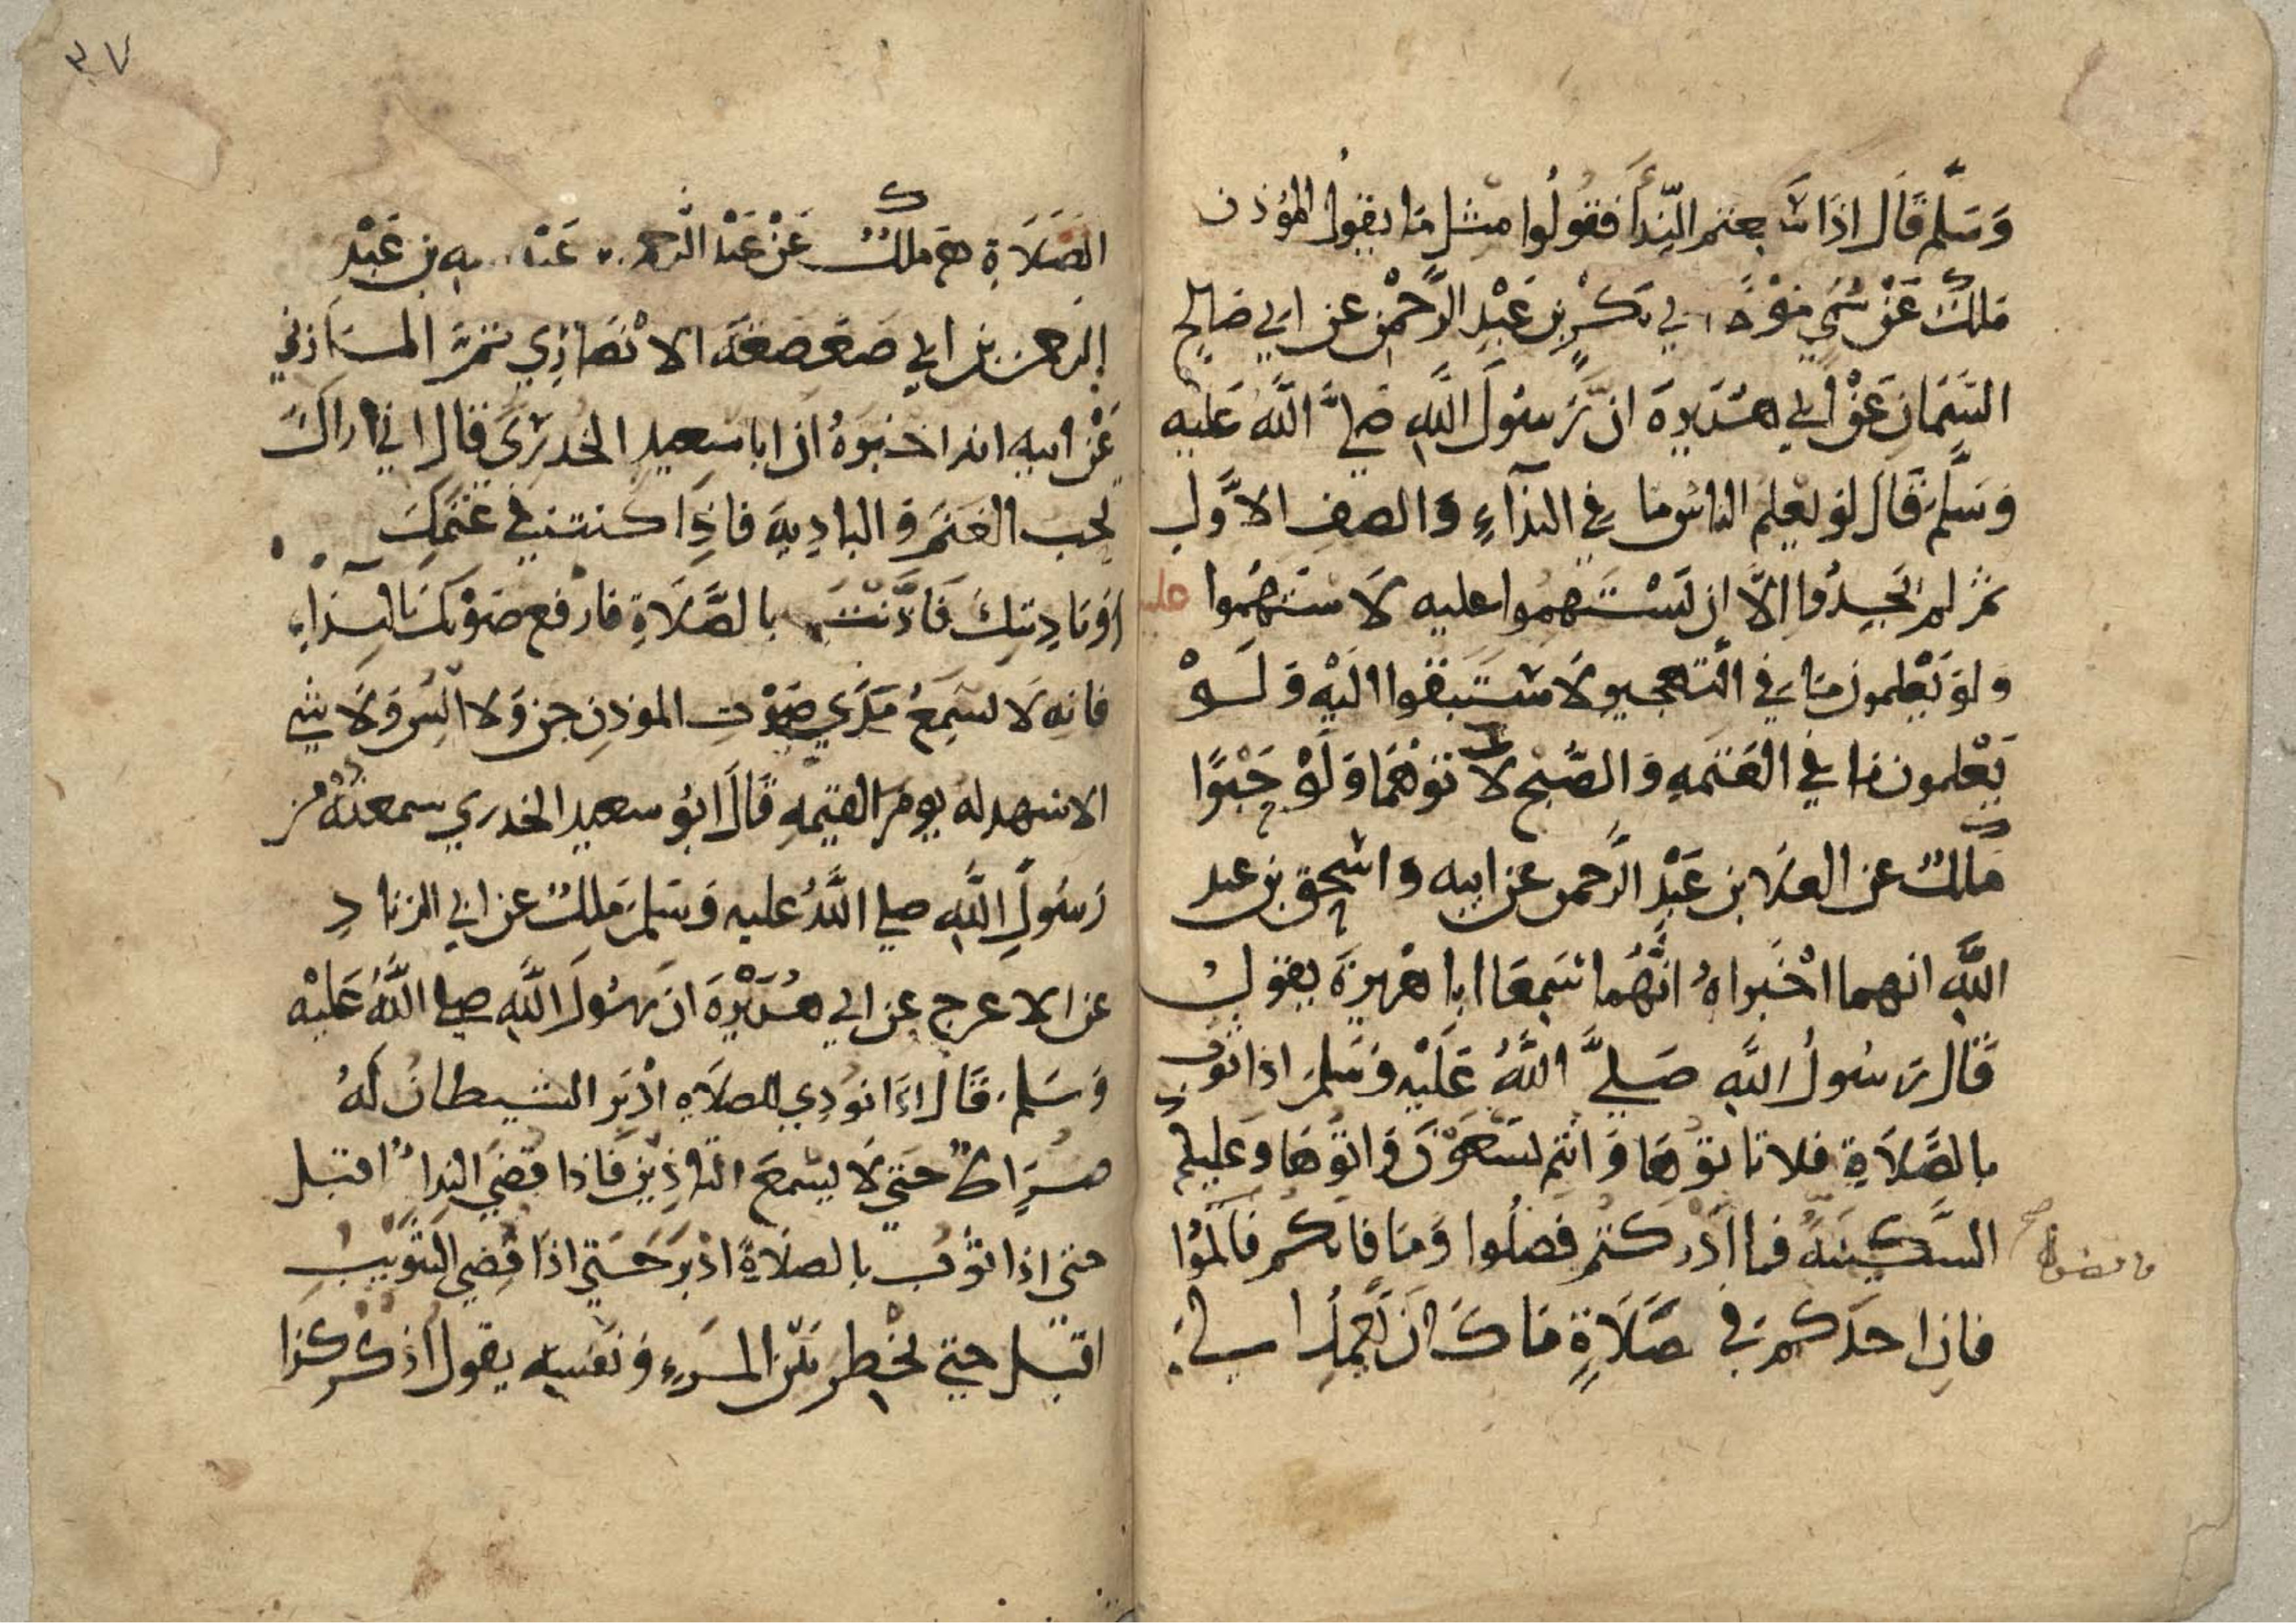 وَسَلَّم قَالَ اذَا سمعتم النِّدَأَ فَقُولُوا مثل مَا يقول المؤذن
مَلكٌ عَنْ سُمَي مَوْلَى ابي بَكْرِ بن عَبْدِ الرَّحْمٰنِ عن ابي صَالِحٍ
السَّمَّانِ عَنْ أبي هُرَيرةَ انَّ رَسُولَ اللَّهِ صَلَّى اللَّهُ عَلَيْه
وَسَلَّمَ قَالَ لوْ يَعْلم الناسُ مَا في النِدَآءِ وَالصفِ الاَوَّلِ
ثمَّ لم يَجِدُوا الاَّ ان يَسْتَهِموا عليه لاَسْتَهَمُوا عليه
ولوْ يَعْلمون مَا في التهجير لاَسْتَبَقوا الَيْهِ وَلَوْ
يَعْلمون مَا في العَتَمَهِ وَالصُّبْحِ لاَتَوْهُمَا وَلَوْ حَبْوًا
مَلكٌ عن العَلَا بن عَبْدِ الرَّحمن عن ابيه وَاسْحق بن عبد
اللَّه انهما اخْبراهُ انَّهُمَا سَمِعَا ابا هريرةَ يقول
قَالَ رَسُولُ اللَّهِ صَلَّى اللَّهُ عَلَيْهِ وَسَلمَ اذا ثُوِّبَ
بالصَّلاَةِ فلا تاتوْهَا وَانتم تَسْعَوْنَ وَاتوْهَا وَعَليكم
السَّكِينَهُ فما ادْرَكتم فصَلُّوا وَمَا فَاتكم فَاَتموْا
فاِن احَدَكم في صَلَاةٍ مَا كَانَ يَعْمِدُ الي
الصَلَاةِ مَلكٌ عَنْ عَبْد الرحمن بن عَبْد الله بن عَبْدِ
الرحمن بن ابي صَعْصَعَةَ الانْصَاري ثمَّ المَازني
عَنْ ابيه انه اخْبرهُ ان ابا سَعيدٍ الخدريّ قال اني اراكَ
تحب الغَنَمَ وَالبادِيةَ فاذِا كنت في غنَمِكَ
اوْ بَادِيتكَ فَاَذَّنْتَ بالصَّلاَةِ فارفع صَوْتكَ بالنِدَاءِ
فانِه لاَ يَسْمَعُ مَدَي صَوْتِ الموذنِ جن وَلا انْسٌ وَلاَ شي
الا شهد له يومَ القيمهِ قَالَ ابُو سعيد الخدري سمعتُهُ من
رَسُولِ اللَّهِ صلي اللَّهُ عليه وَسَلمَ مَلكٌ عن ابي الزناد
عن الاعرج عن ابي هُرَيْرَةَ ان رَسُولَ اللَّهِ صلي اللَّهُ عَلَيْه
وَسَلمَ قَالَ اذَا نودِي للصلاَهِ ادْبَر الشيطانُ لَهُ
ضُرَاطٌ حَتي لاَ يسْمعَ التاذِينَ فَاذا قضي الندا اقبل
حتي اذا ثوِّبَ بالصلاَةِ ادْبَرَ حَتي اذَا قضِي التثوِيبُ
اقبَل حتي يَخْطِر بَيْن المَرءِ وَنَفسِهِ يقول اذْكر كذا
٣٧